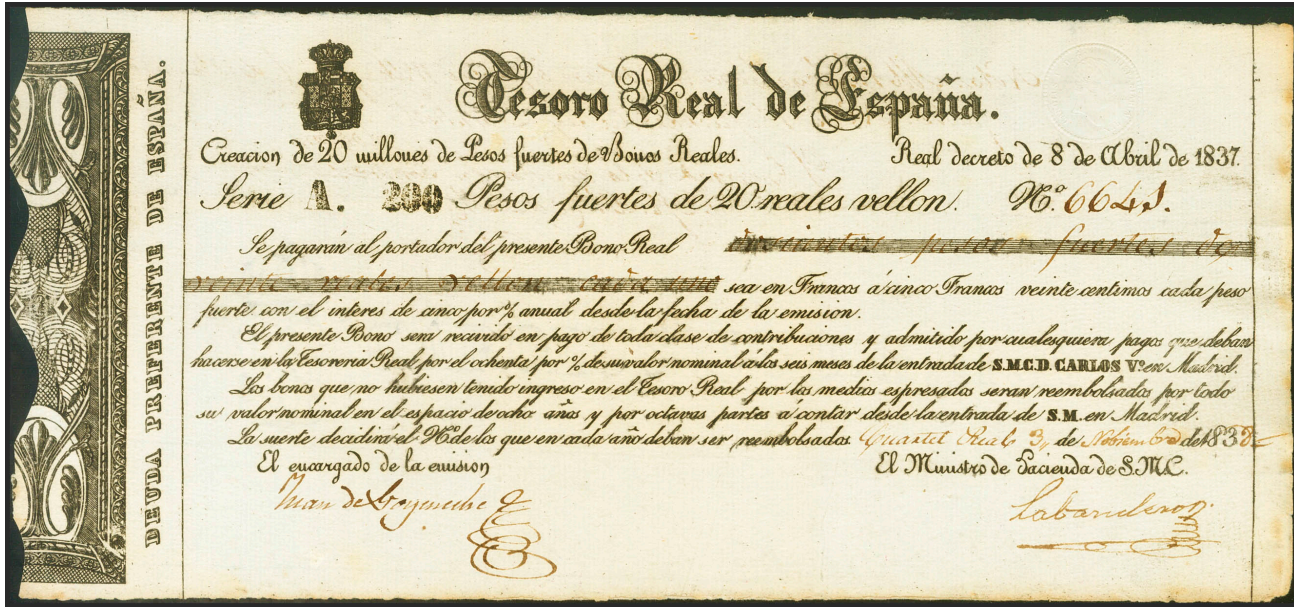 DEUDA PREFERENTE DE ESPAÑA.
Tesoro Real de España.
Creacion de 20 millones de Pesos fuertes de Bonos Reales. Real decreto de 8 de Abril de 1837.
Serie A. 200 Pesos fuertes de 20 reales vellon. Nº. 6641.
Se pagarán al portador del presente Bono Real doscientos pesos fuertes de
veinte reales vellon cada uno sea en Francos á cinco Francos veinte centimos cada peso
fuerte con el interes de cinco por % anual desde la fecha de la emision.
El presente Bono será recivido en pago de toda clase de contribuciones y admitido por cualesquiera pagos que deban
hacerse en la Tesoreria Real por el ochenta por % de su valor nominal a los seis meses de la entrada de S.M.C.D. CARLOS Vº. en Madrid.
Los bonos que no hubiesen tenido ingreso en el Tesoro Real por los medios espresados seran reembolsados por todo
su valor nominal en el espacio de ocho años y por octavas partes a contar desde la entrada de S.M. en Madrid.
La suerte decidirá el Nº de los que en cada año deban ser reembolsados. Quartel Real 3, de Nobiembre de 1838
El encargado de la emision El Ministro de Hacienda de S.M.C.
Juan de Goyeneche Labandero